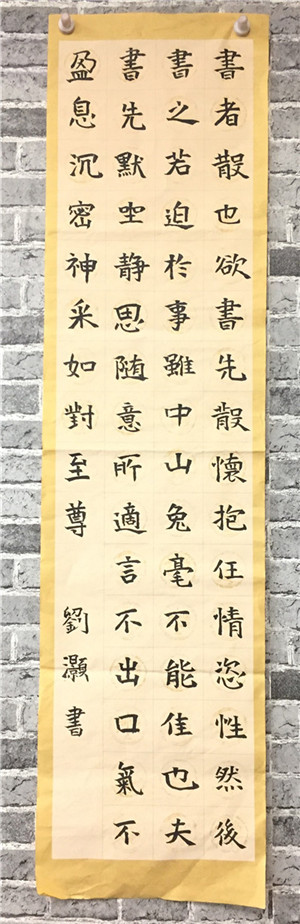 書者散也欲書先散懷抱任情恣性然後
書之若迫於事雖中山兔毫不能佳也夫
書先默坐静思随意所適言不出口氣不
盈息沉密神采如對至尊 劉灝書